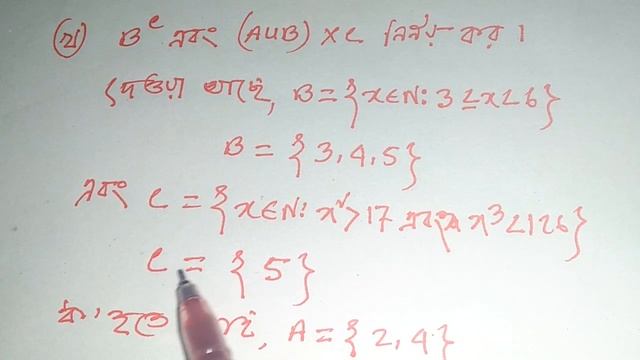 (খ) B^c এবং (A∪B) × C নির্ণয় কর।
দেওয়া আছে, B = {x∈N: 3 ≤ x < 6}
B = {3, 4, 5}
এবং C = {x∈N: x² > 17 এবং x³ < 126}
C = {5}
'ক' হতে হই, A = {2, 4}